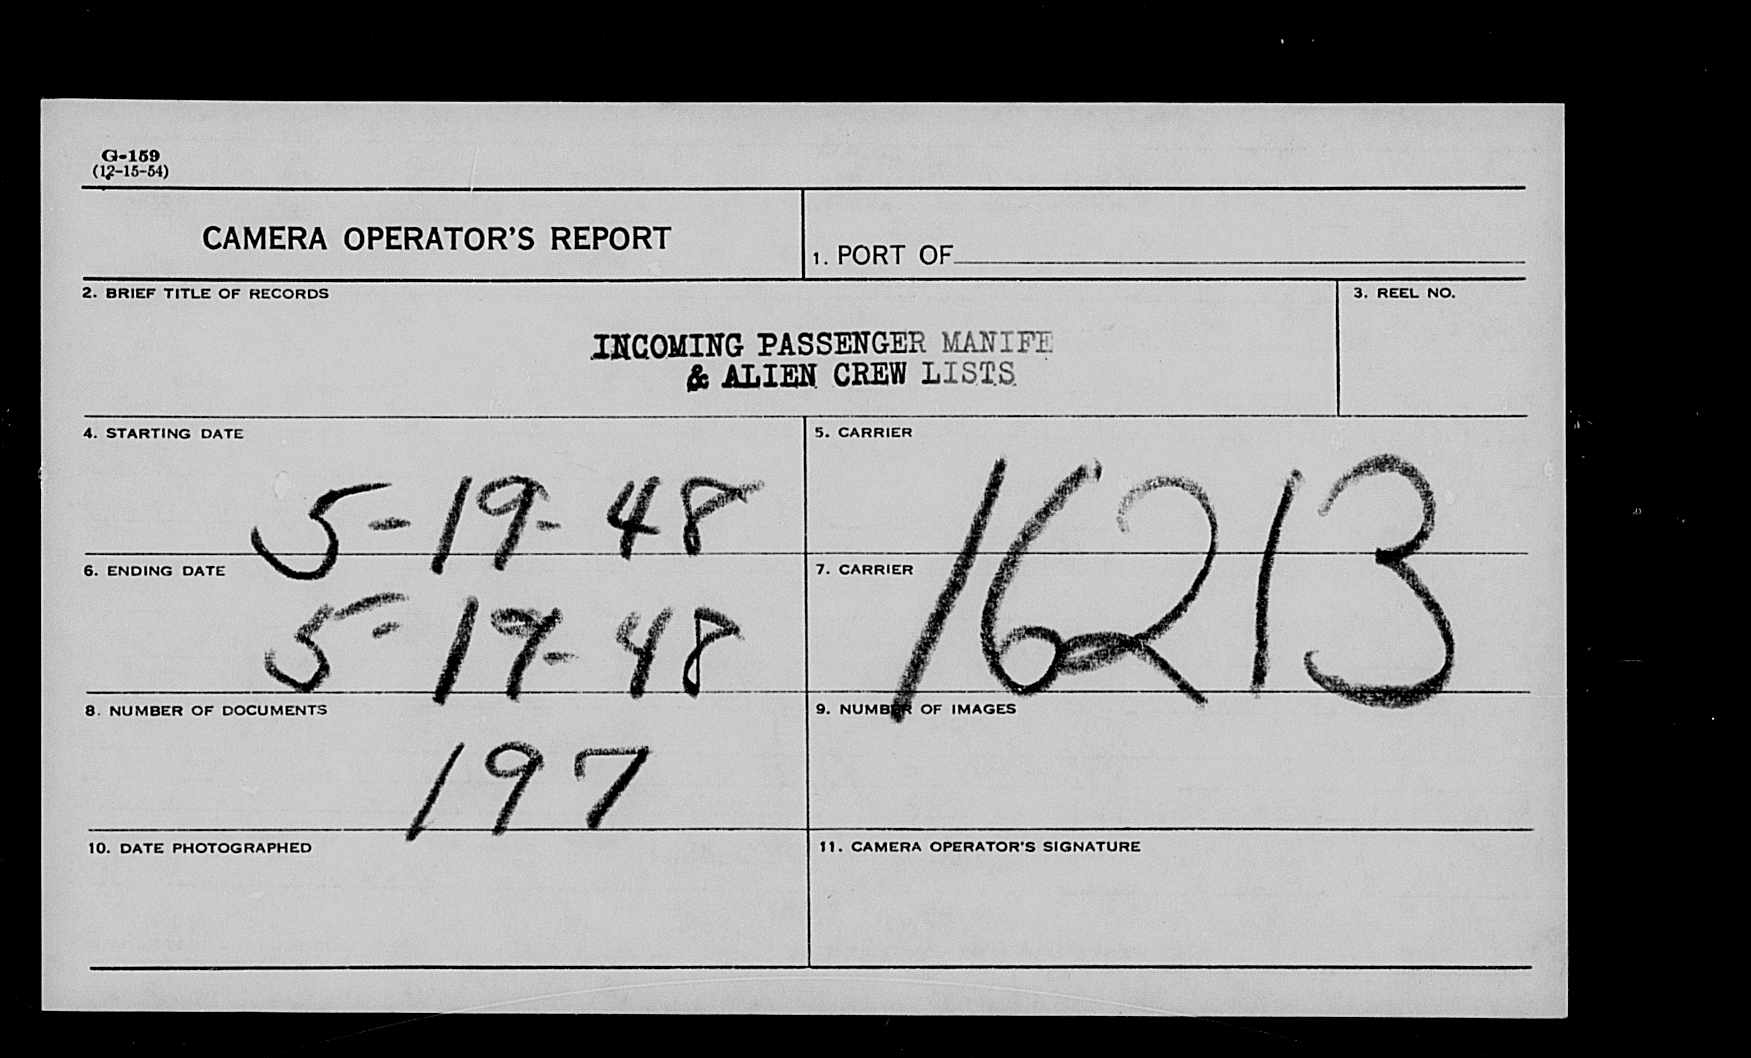 G-159
(12-15-54)
CAMERA OPERATOR'S REPORT
1. PORT OF
2. BRIEF TITLE OF RECORDS
3. REEL NO.
INCOMING PASSENGER MANIFE
& ALIEN CREW LISTS
4. STARTING DATE
5. CARRIER
5-19-48
6. ENDING DATE
7. CARRIER
16213
5-19-48
8. NUMBER OF DOCUMENTS
9. NUMBER OF IMAGES
197
10. DATE PHOTOGRAPHED
11. CAMERA OPERATOR'S SIGNATURE